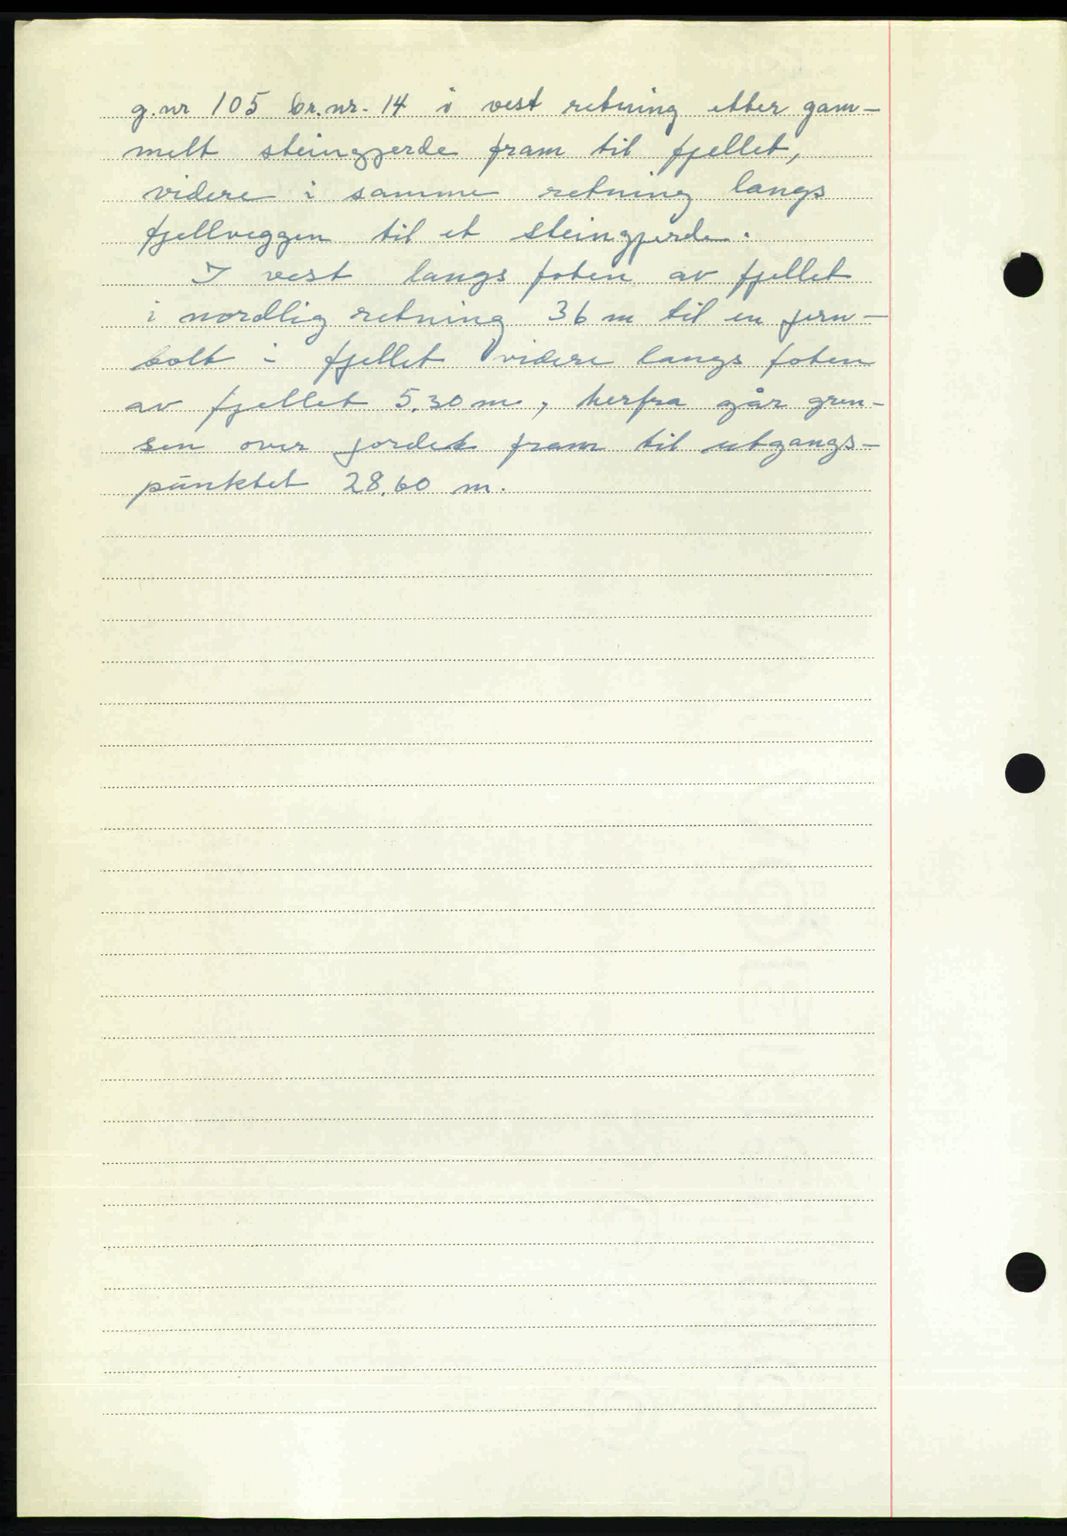 g.nr 105 br.nr. 14 i vest retning etter gam-
melt steingjerde fram til fjellet,
videre i samme retning langs
fjellveggen til et steingjerde.
I vest langs foten av fjellet
i nordlig retning 36 m til en jern-
bolt i fjellet videre langs foten
av fjellet 5.30 m, herfra går gren-
sen over jordet fram til utgangs-
punktet 28.60 m.